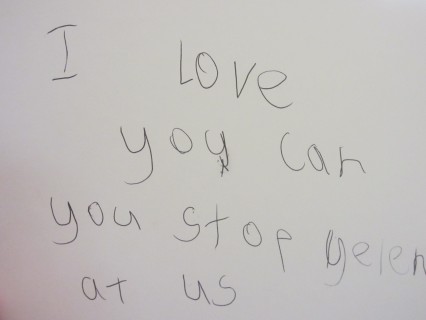 I love
you can
you stop yelen
at us